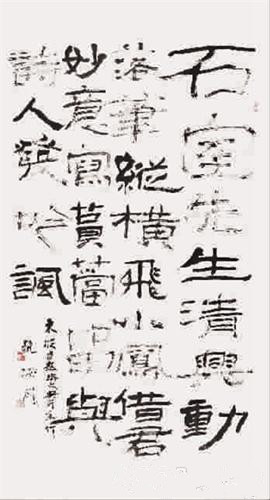 石室先生清興動
落筆縱橫飛小鳳借君
妙意寫篔簹留與
詩人發吟諷
東坡